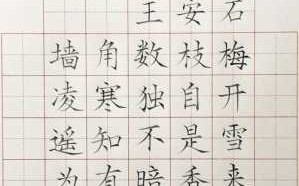 王安石
墙角数枝梅
凌寒独自开
遥知不是雪
为有暗香来